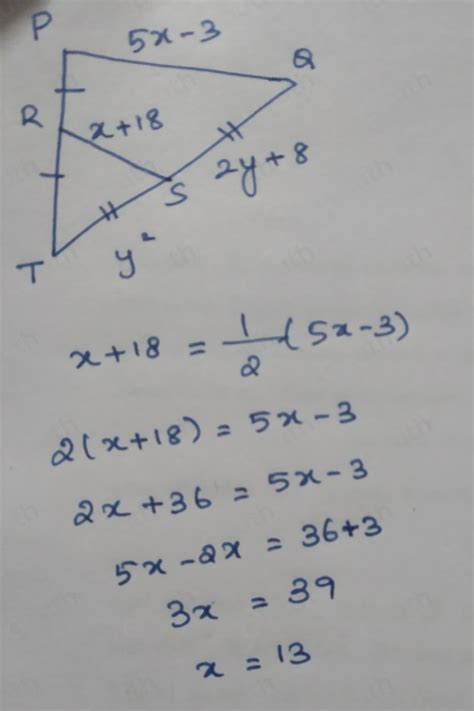 P
5x-3
Q
R
x+18
2y+8
S
T
y²
x+18 = 1/2 (5x-3)
2(x+18) = 5x-3
2x+36 = 5x-3
5x-2x = 36+3
3x = 39
x = 13